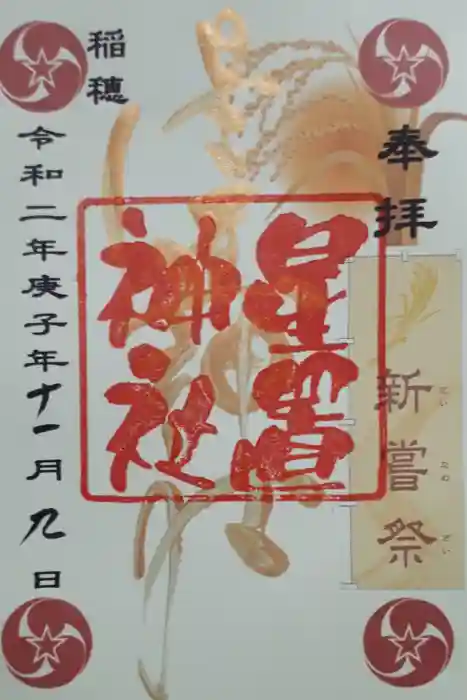 奉拝
新嘗祭
星置
神社
稲穂
令和二年庚子年十一月九日